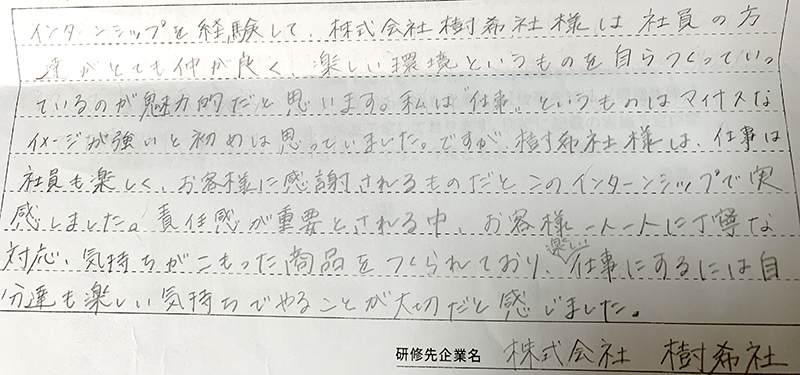 インターンシップを経験して、株式会社樹希社様は社員の方
達がとても仲が良く、楽しい環境というものを自らつくっていっ
ているのが魅力的だと思います。私は"仕事"というものはマイナスな
イメージが強いと初めは思っていました。ですが、樹希社様は、仕事は
社員も楽しく、お客様に感謝されるものだとこのインターンシップで実
感しました。責任感が重要とされる中、お客様一人一人に丁寧な
対応、気持ちがこもった商品をつくられており、楽しい仕事にあるには自
分達も楽しい気持ちでやることが大切だと感じました。
研修先企業名 株式会社 樹希社